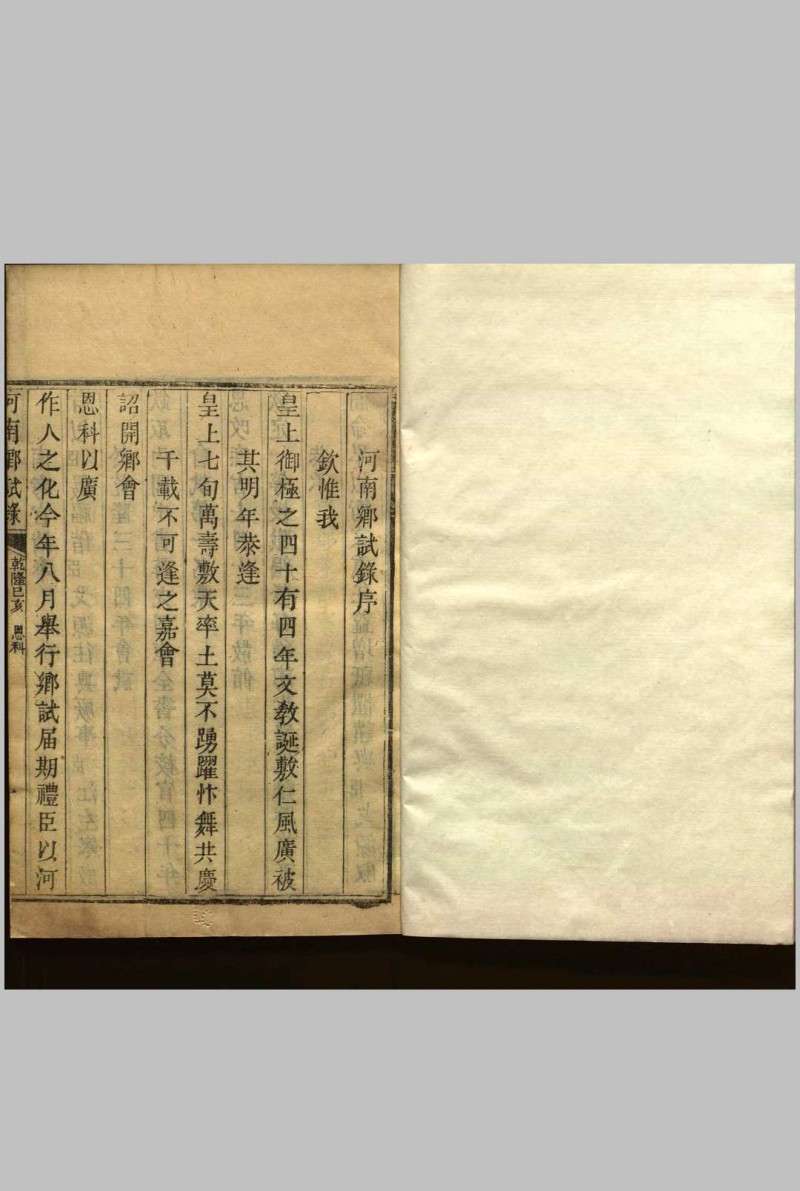 河南鄉試錄序
欽惟我
皇上御極之四十有四年文教誕敷仁風廣被
其明年恭逢
皇上七旬萬壽敷天率土莫不踴躍忭舞共慶
千載不可逢之嘉會
詔開鄉會
恩科以廣
作人之化今年八月舉行鄉試届期禮臣以河
河南鄉試錄 乾隆己亥 恩科